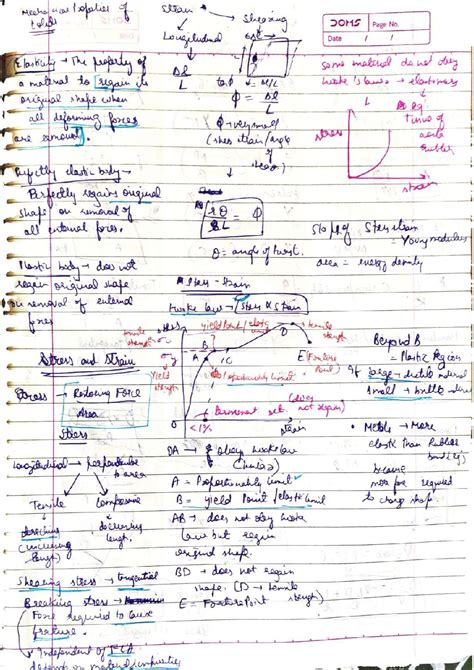 Mechanical Properties of
Solids
Elasticity → The property of
a material to regain its
original shape when
all deforming forces
are removed.
Perfectly elastic body →
Perfectly regains original
shape on removal of
all external force.
Plastic body → does not
regain original shape
on removal of external
forces
Stress and Strain
Stress → Restoring Force
Area
Stress
Longitudinal → perpendicular
to area
Tensile
Compressive
Shearing stress → tangential
Breaking stress →
Force required to cause
fracture.
* Independent of
depends on material
Strain
Longitudinal
Shearing
Δl
L
ϕ = Δl
L
ϕ → very small
rθ = ϕ
L
θ = angle of twist.
Stress - Strain
Hooke law → Stress ∝ Strain
stress
Yield
strength
A
B
C
D
E
O
<1%
Permanent set
strain
OA → obey hooke law
(linear)
A = Proportionality limit
B = Yield Point / elastic limit
AB → does not obey hooke
law but regain
original shape.
BD → does not regain
shape. (D → tensile
strength)
E = Fracture Point
DOMS
Page No.
Date / /
some material do not obey
hooke's law → elastomers
stress
strain
Slope of Stress strain
= Young modulus
area = energy density
Beyond B
= Plastic Region
If large → ductile material
small → brittle
• Metals → More
elastic than Rubber
because
more force required
to change shape.